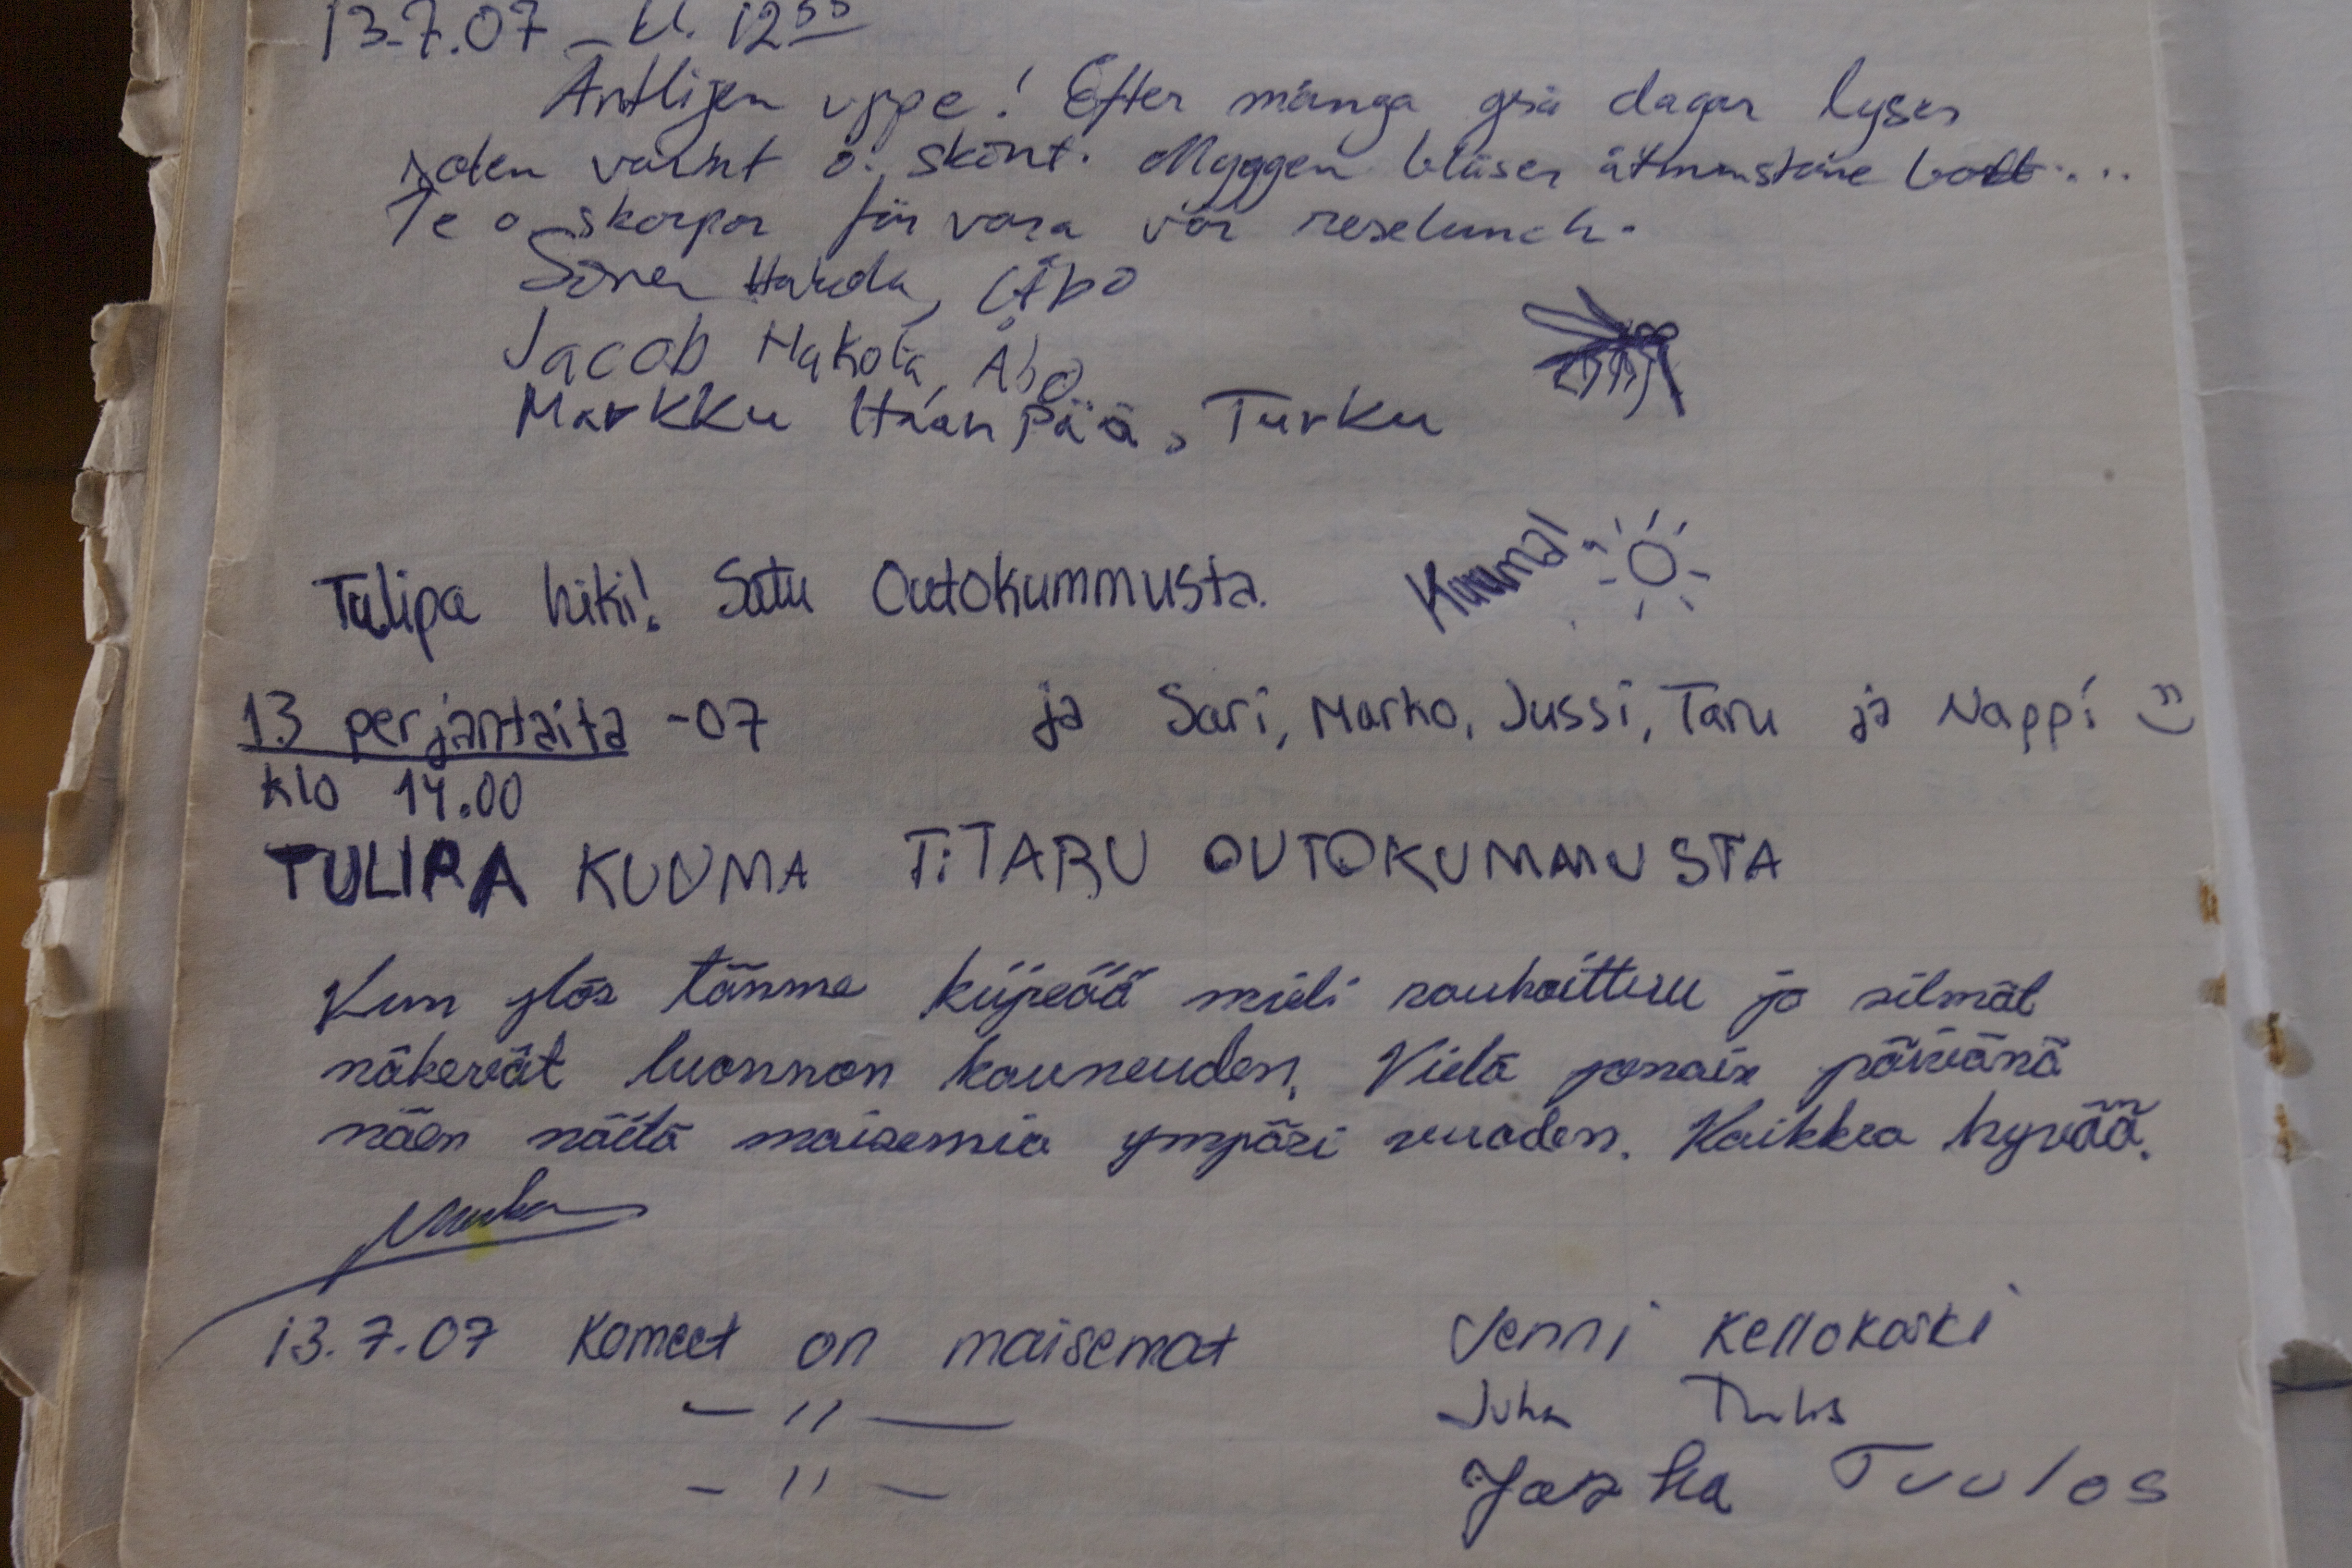 13.7.07 - kl. 12⁵⁵
Äntligen uppe! Efter många grå dagar lyser
solen varmt o. skönt. Myggen blåser åtminstone bort...
Te o skorpor får vara vår reselunch.
Åbo
Jacob Makola, Åbo
Markku Haanpää, Turku
Tulipa hiki! Satu Outokummusta. Kuuma!
13 perjantaita -07 ja Sari, Marko, Jussi, Taru ja Nappi :)
klo 14.00
TULIPA KUUMA TiTARU OUTOKUMMUSTA
Kun ylös tänne kiipeää mieli rauhoittuu ja silmät
näkevät luonnon kauneuden. Vielä jonain päivänä
näen näitä maisemia ympäri vuoden. Kaikkea hyvää.
13.7.07 Komeet on maisemat Jenni Kellokoski
— 〃 — Juha
— 〃 — Jaska Tuulos